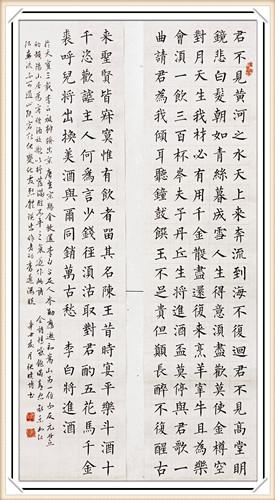 君不見黃河之水天上來奔流到海不復回君不見高堂明
鏡悲白髮朝如青絲暮成雪人生得意須盡歡莫使金樽空
對月天生我材必有用千金散盡還復來烹羊宰牛且為樂
會須一飲三百杯岑夫子丹丘生將進酒盃莫停與君歌一
曲請君為我傾耳聽鐘鼓饌玉不足貴但願長醉不復醒古
來聖賢皆寂寞惟有飲者留其名陳王昔時宴平樂斗酒十
千恣歡謔主人何為言少錢徑須沽取對君酌五花馬千金
裘呼兒將出換美酒與爾同銷萬古愁 李白將進酒
於天寶三載李白被排擠出京唐玄宗賜金放還李白